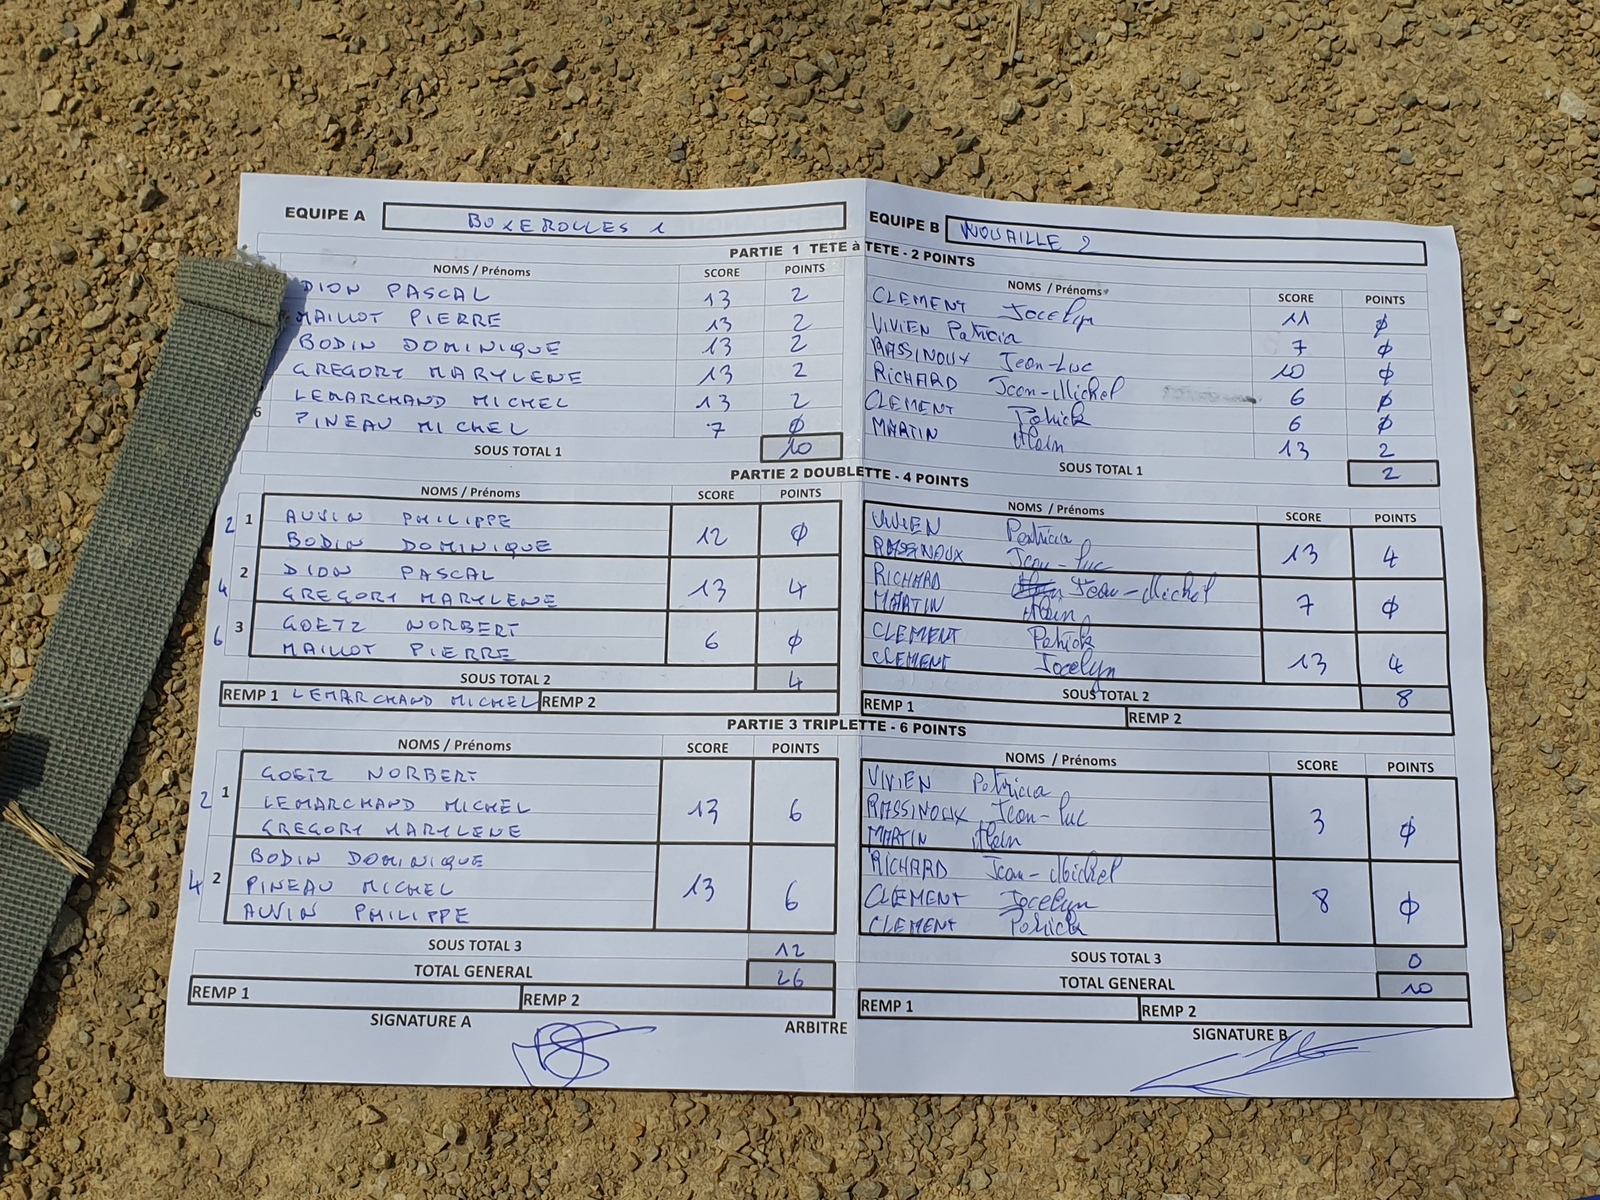 EQUIPE A BUXEROLLES 1 EQUIPE B NOUAILLE 2
PARTIE 1 TETE à TETE - 2 POINTS
NOMS / Prénoms SCORE POINTS NOMS / Prénoms SCORE POINTS
DION PASCAL 13 2 CLEMENT Jocelyn 11 ∅
MAILLOT PIERRE 13 2 VIVIEN Patricia 7 ∅
BODIN DOMINIQUE 13 2 RASSINOUX Jean-Luc 10 ∅
GREGORY MARYLENE 13 2 RICHARD Jean-Michel 6 ∅
LEMARCHAND MICHEL 13 2 CLEMENT Patrick 6 ∅
6 PINEAU MICHEL 7 ∅ MARTIN Alain 13 2
SOUS TOTAL 1 10 SOUS TOTAL 1 2
PARTIE 2 DOUBLETTE - 4 POINTS
NOMS / Prénoms SCORE POINTS NOMS / Prénoms SCORE POINTS
2 1 AUVIN PHILIPPE 12 ∅ VIVIEN Patricia 13 4
BODIN DOMINIQUE RASSINOUX Jean-Luc
4 2 DION PASCAL 13 4 RICHARD Jean-Michel 7 ∅
GREGORY MARYLENE MARTIN Alain
6 3 GOETZ NORBERT 6 ∅ CLEMENT Patrick 13 4
MAILLOT PIERRE CLEMENT Jocelyn
SOUS TOTAL 2 4 SOUS TOTAL 2 8
REMP 1 LEMARCHAND MICHEL REMP 2 REMP 1 REMP 2
PARTIE 3 TRIPLETTE - 6 POINTS
NOMS / Prénoms SCORE POINTS NOMS / Prénoms SCORE POINTS
2 1 GOETZ NORBERT 13 6 VIVIEN Patricia 3 ∅
LEMARCHAND MICHEL RASSINOUX Jean-Luc
GREGORY MARYLENE MARTIN Alain
4 2 BODIN DOMINIQUE 13 6 RICHARD Jean-Michel 8 ∅
PINEAU MICHEL CLEMENT Jocelyn
AUVIN PHILIPPE CLEMENT Patrick
SOUS TOTAL 3 12 SOUS TOTAL 3 0
TOTAL GENERAL 26 TOTAL GENERAL 10
REMP 1 REMP 2 REMP 1 REMP 2
SIGNATURE A ARBITRE SIGNATURE B